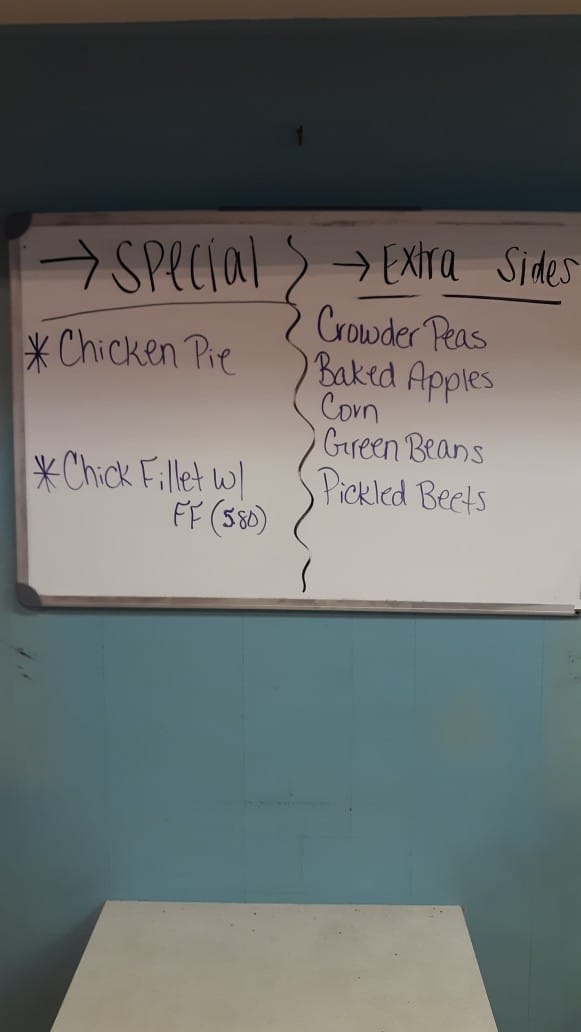 → Special
* Chicken Pie
* Chick Fillet w/
FF (580)
→ Extra Sides
Crowder Peas
Baked Apples
Corn
Green Beans
Pickled Beets